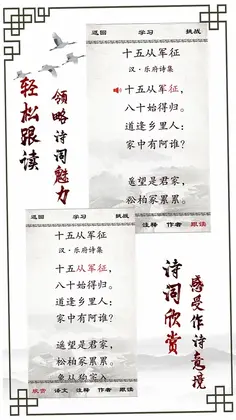 返回 学习 挑战
十五从军征
汉·乐府诗集
十五从军征，
八十始得归。
道逢乡里人：
家中有阿谁？
遥望是君家，
松柏冢累累。
轻松跟读
领略诗词魅力
返回 学习 挑战
十五从军征
汉·乐府诗集
十五从军征，
八十始得归。
道逢乡里人：
家中有阿谁？
遥望是君家，
松柏冢累累。
兔从狗窦入
欣赏 译文 注释 作者 跟读
注释 作者 跟读
诗词欣赏
感受作诗意境